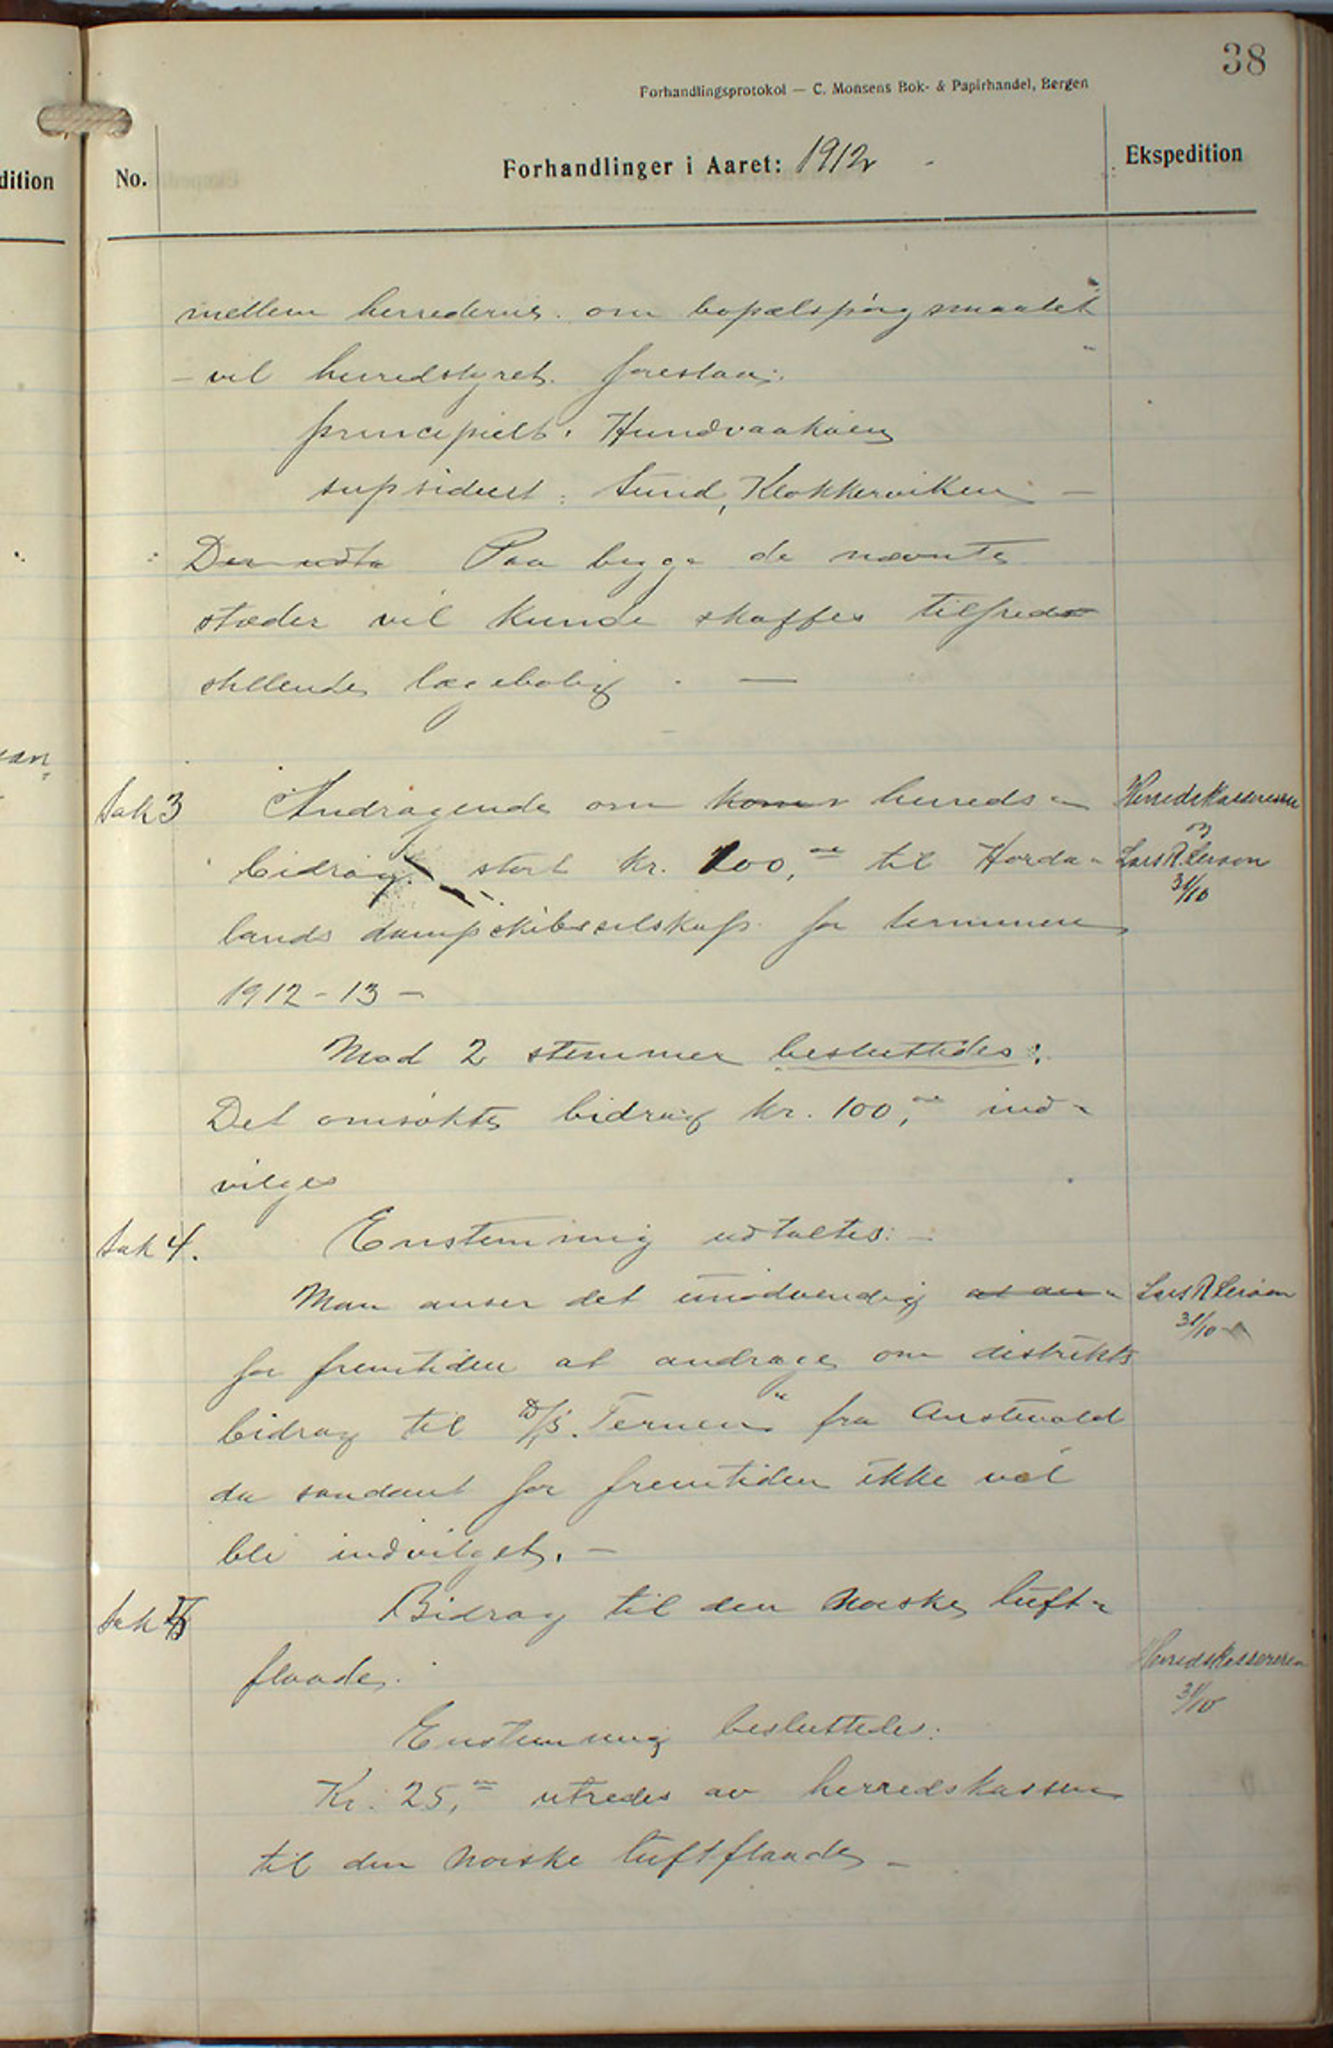 38
Forhandlingsprotokol — C. Monsens Bok- & Papirhandel, Bergen
dition
No.
Forhandlinger i Aaret: 1912
Ekspedition
mellem herrederne om bopælspörgsmaalet
- vil herredstyret foreslaa:
principielt: Hundvaakøen
supsidiert: Sund, Klokkerviken -
Den udta Paa begge de nævnte
stæder vil kunde skaffes tilfreds
stillende lægebolig. -
Sak 3
Andragende om kom herreds-
Herredskassereren
og
bidrag stort kr. 100,- til Horda-
Lars R. Leröen
31/10
lands dampskibsselskap for terminen
1912-13-
Mod 2 stemmer besluttedes:
Det omsökte bidrag kr. 100,- ind-
vilges
Sak 4.
Enstemmig udtaltes:-
Man anser det unödvendig at an-
Lars R Leröen
31/10
for fremtiden at andrage om distrikts
bidrag til D/S. Ternen" fra Austevold
da saadant for fremtiden ikke vil
bli indvilget.-
Sak 5
Bidrag til den Norske luft-
flaade.
Herredskassereren
31/10
Enstemmig besluttedes:
Kr. 25,- utredes av herredskassen
til den Norske luftflaade-